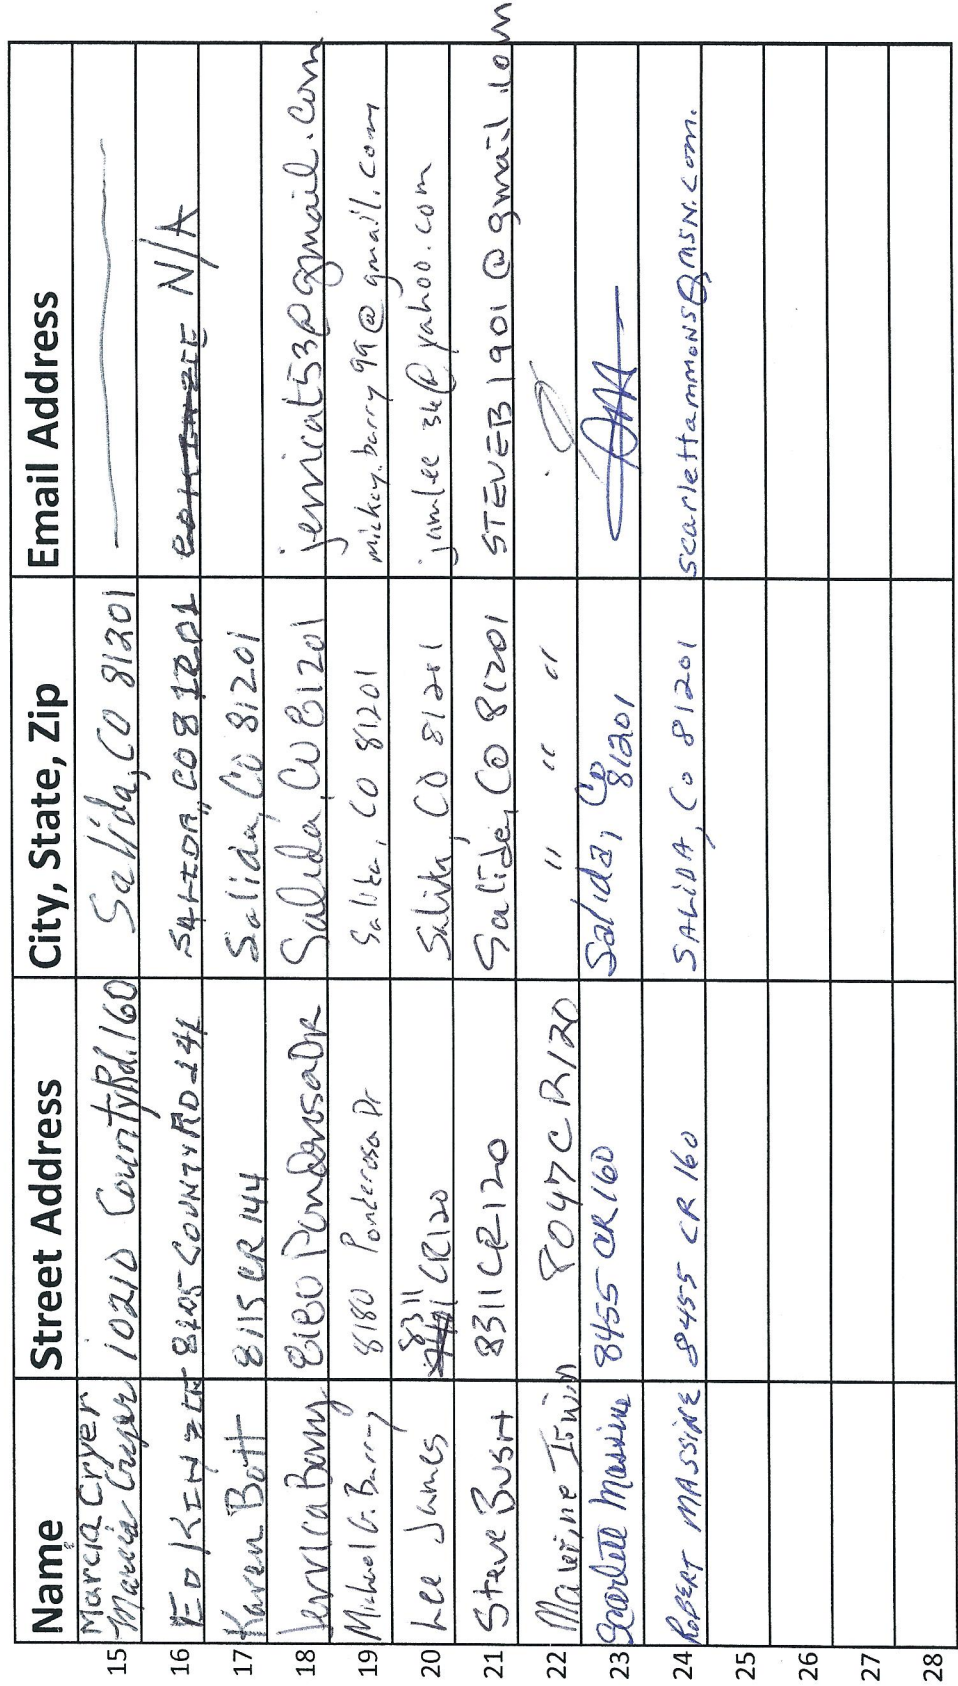 Name Street Address City, State, Zip Email Address
15 Marcia Cryer 10210 County Rd. 160 Salida, CO 81201
Marcia Cryer
16 ED KINZIE 8205 COUNTY RD 141 SALIDA, CO 81201 N/A
17 Karen Bott 8115 CR 144 Salida, CO 81201
18 Jerrica Barry 8180 Ponderosa DR Salida, CO 81201 jerricat53@gmail.com
19 Michael G. Barry 8180 Ponderosa Dr Salida, CO 81201 mickey.barry99@gmail.com
20 Lee James 8311 CR120 Salida, CO 81201 jamlee34@yahoo.com
21 Steve BUSH 8311 CR120 Salida, CO 81201 STEVEB1901@gmail.com
22 8047 CR120 " " "
23 Scarlett Massine 8455 CR 160 Salida, CO 81201
24 ROBERT MASSINE 8455 CR 160 SALIDA, CO 81201 scarlettammons@MSN.com.
25
26
27
28